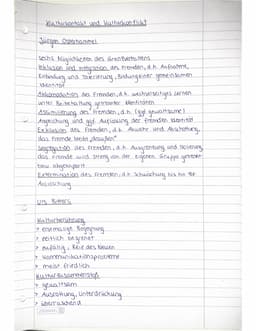 Kulturkontakt und Kulturkonflikt
Jürgen Osterhammel
sechs Möglichkeiten des Grenzverhaltens
Inklusion und Integration des Fremden, d.h. Aufnahme,
Einbindung und Tolerierung, Bildung einer gemeinsamen
Identität
Akkomodation des Fremden, d.h. wechselseitiges Lernen
unter Beibehaltung getrennter Identitäten
Assimilierung des Fremden, d.h. (ggf. gewaltsame)
Angleichung und ggf. Auflösung der fremden Identität
Exklusion des Fremden, d.h. Abwehr und Abschottung,
das Fremde bleibt "draußen"
Segregation des Fremden, d.h. Ausgrenzung und Isolierung,
das Fremde wird streng von der eigenen Gruppe getrennt
bzw. abgekapselt
Extermination des Fremden, d.h. Schwächung bis hin zur
Auslöschung
Urs Bitterli
Kulturberührung
> erstmalige Begegnung
> zeitlich begrenzt
> zufällig, Reiz des Neuen
> Kommunikationsprobleme
> meist friedlich
Kulturzusammenstoß
> gewaltsam
> Ausrottung, Unterdrückung
> überraschend